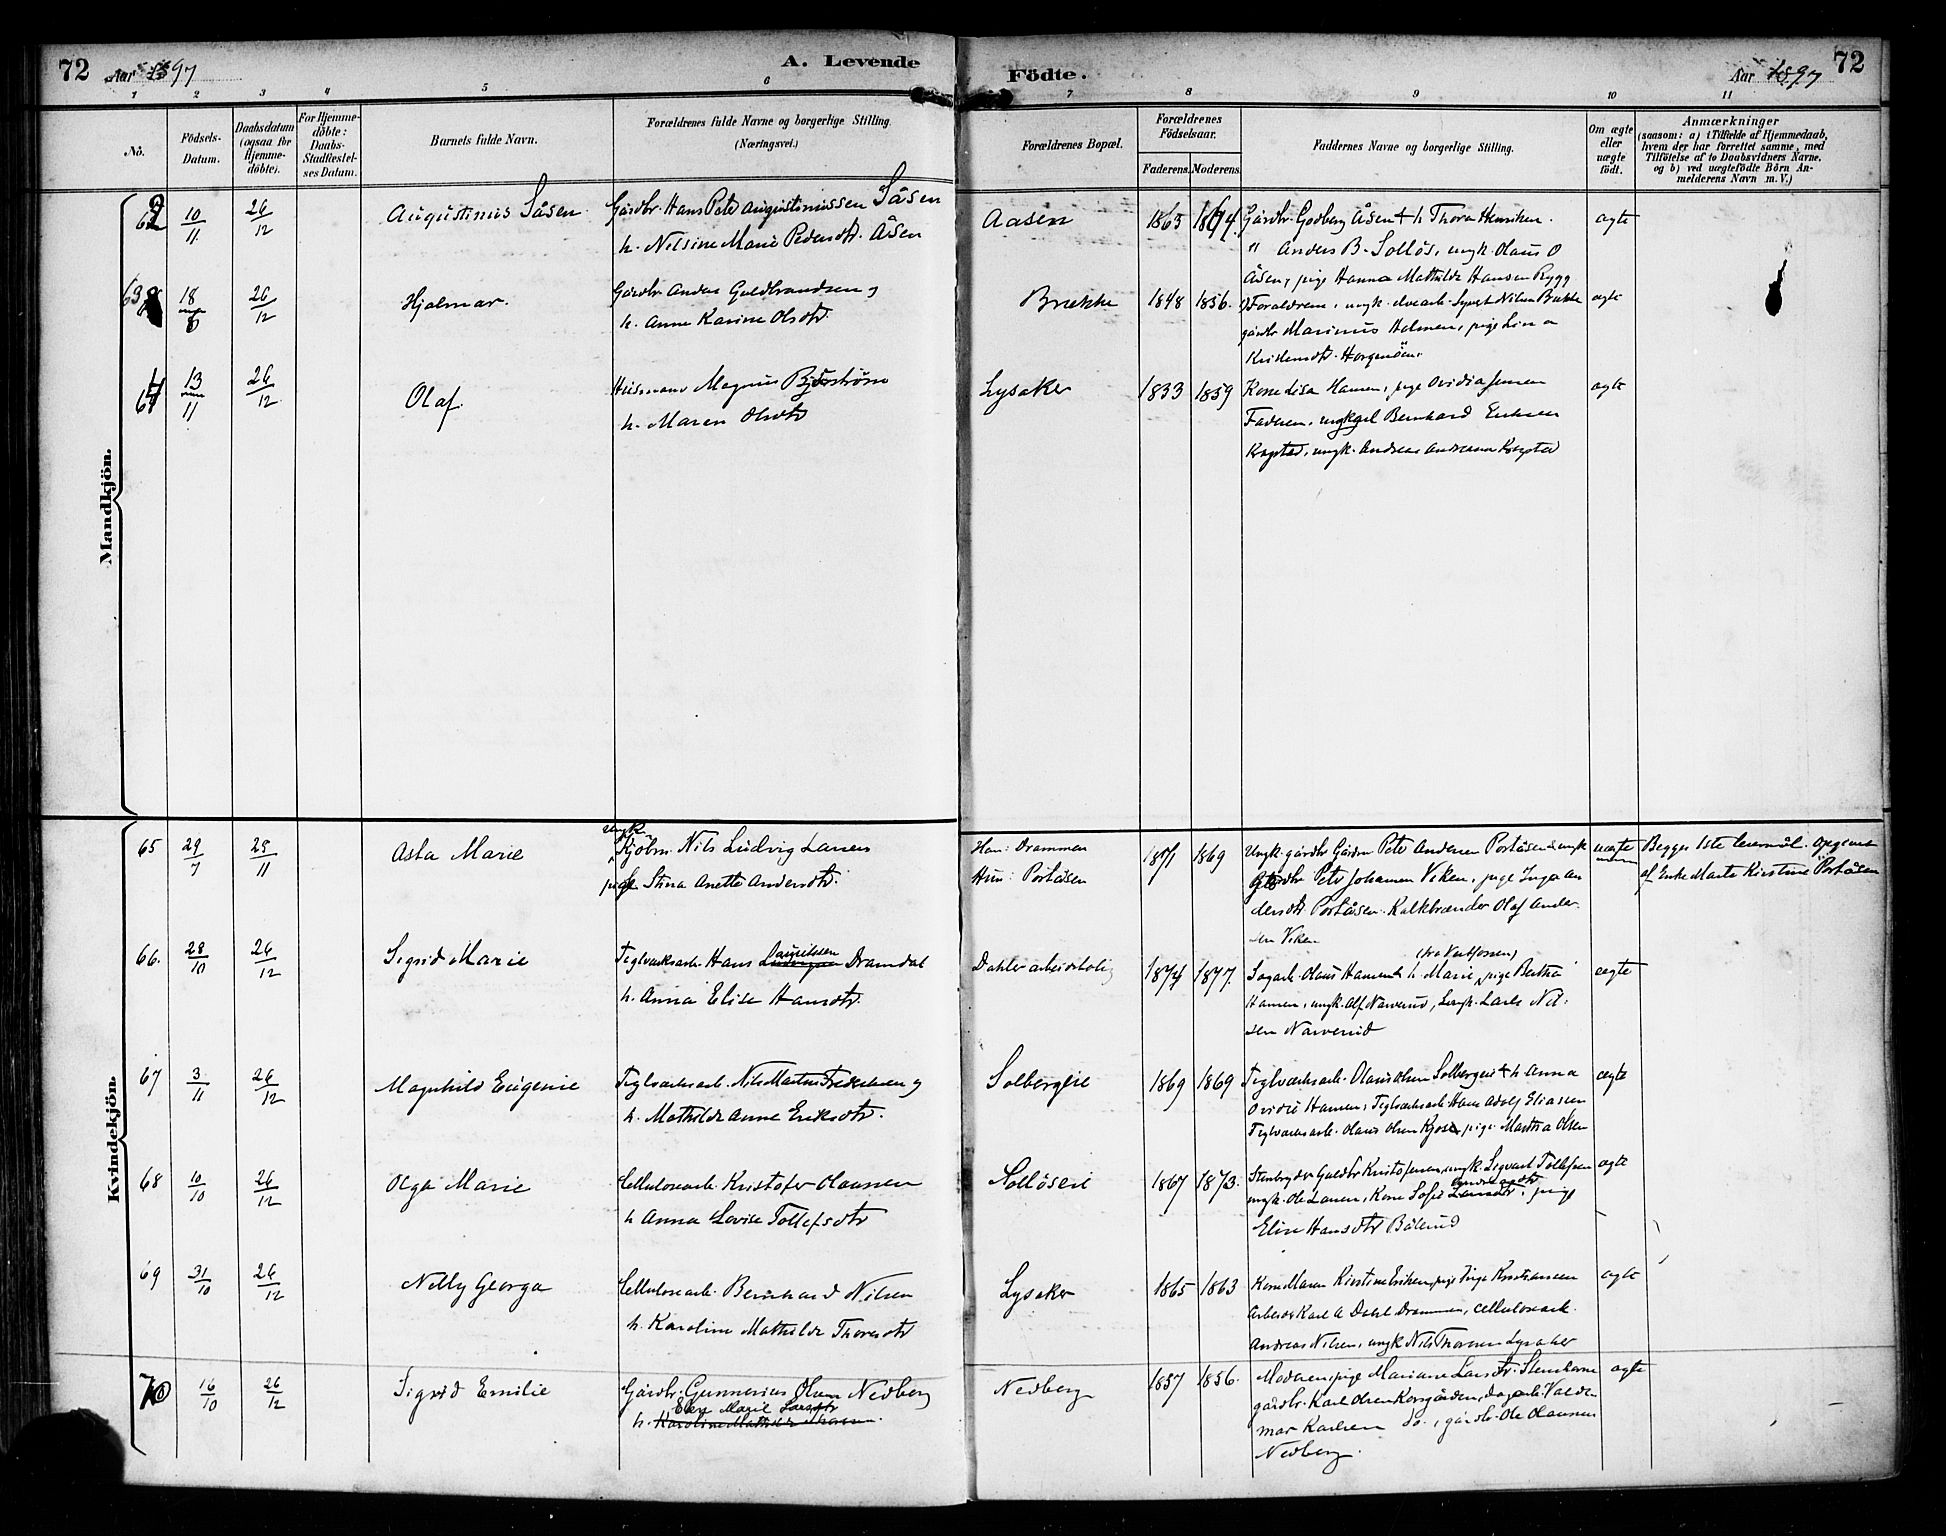 72
Aar 1897
A. Levende
Födte.
Aar 1897
72
1 2 3 4 5 6 7 8 9 10 11
No.
Födsels-Datum.
Daabsdatum (ogsaa for Hjemme-döbte).
For Hjemme-döbte: Daabs-Stadfæstel-ses Datum.
Barnets fulde Navn.
Forældrenes fulde Navne og borgerlige Stilling.
(Næringsvei.)
Forældrenes Bopæl.
Forældrenes Födselsaar.
Faderens. Moderens.
Faddernes Navne og borgerlige Stilling.
Om ægte eller uægte födt.
Anmærkninger
(saasom: a) i Tilfælde af Hjemmedaab,
hvem der har forrettet samme, med
Tilföielse af to Daabsvidners Navne,
og b) ved uægtefödte Börn An-
melderens Navn m. V.)
Mandkjön.
62 10/11 26/12 Augustinus Såsen
Gårdbr. Hans Peter Augustinussen Såsen
h. Nilsine Marie Pedersdtr. Åsen
Aasen 1863 1864.
Gårdbr. Godberg Åsen + h Thora Henriksen.
" Anders B. Sollös, ungk. Olaus O
Åsen, pige Hanna Mathilde Hansen Rygg
ægte
63 18/8 26/12 Hjalmar.
Gårdbr. Anders Guldbrandsen og
h. Anne Karine Olsdtr.
Brække 1848 1856.
Forældrene, ungk. elvearb. Syvert Nilsen Brække
gårdbr Marinus Holmen, pige Lina
Kristensdtr. Horgenöen.
ægte
64 13/11 26/12 Olaf.
Husmand Magnus Bjerström
h. Maren Olsdtr
Lysaker 1833 1859
Kone Lisa Hansen, pige Ovidia Jensen
Faderen, ungkarl Bernhard Eriksen
Kopstad, ungk. Andreas Andreasen Kopstad
ægte
Kvindekjön.
65 29/7 25/11 Asta Marie
ungk.
Kjölsm. Nils Ludvig Larsen
pige Stina Anette Andersdtr.
Han: Drammen
Hun: Portåsen
1871 1869
Ungk. gårdbr Gårdm Peter Andersen Portåsen, ungk
Gårdbr Peter Johansen Viken, pige Inga An
dersdtr Portåsen. Kalkbrænder Olaf Ander.
sen Viken
uægte
Begges 1ste leiermål. Opgivet
af Enke Marte Kirstine Portåsen
66. 28/10 26/12 Sigrid Marie
Teglværksarb. Hans Lauritssen Dramdal
h. Anna Elise Hansdtr.
Dahler arbeiderbolig 1874 1877.
(fra Vestfossen)
Sagarb. Olaus Hansen & h. Marie, pige Bertha
Hansen, ungk. Alf Narverud, Ungk. Lars Nil-
sen Narverud
ægte
67 3/11 26/12 Magnhild Eugenie
Teglværksarb. Nils Martin Fredriksen og
h. Mathilde Anne Eriksdtr.
Solbergeie 1869 1869
Teglværksarb. Olaus Olsen Solbergeie + h Anna
Ovidie Hansen, Teglværksarb. Hans Adolf Eliassen
Teglværksarb. Olaus Olsen Kjos, pige Martha Olsen
ægte
68 10/10 26/12 Olga Marie
Cellulosearb. Kristofer Olaussen
h Anna Lovise Tollefsdtr
Sollöseie 1867 1873.
Stenbryder Guldbr Kristofersen, ungk. Sigvart Tollefsen
ungk. Ole Larsen, Kone Sofie Larsdtr, pige
Elise Hansdtr Bålerud
ægte
69 31/10 26/12 Nelly Georga
Cellulosearb. Bernhard Nilsen
h. Karoline Mathilde Thoresdtr
Lysaker 1865 1863
Kone Maren Kirstine Eriksen, pige Inga Kristiansen
Arbeider Karl A Dahl Drammen, cellulosearb.
Andreas Nilsen, ungk Nils Thoresen Lysaker
ægte
70 16/10 26/12 Sigrid Emilie
Gårdbr. Gunnerius Olsen Nedberg
Elen Marie Larsdtr
h. Karoline Mathilde Thoresen.
Nedberg 1857 1856.
Moderen, pige Mariane Larsdtr. Stenshorne
gårdbr. Karl Olsen Korsgården, dagarb. Valde-
mar Karlsen do., gårdbr. Ole Olaussen
Nedberg.
ægte